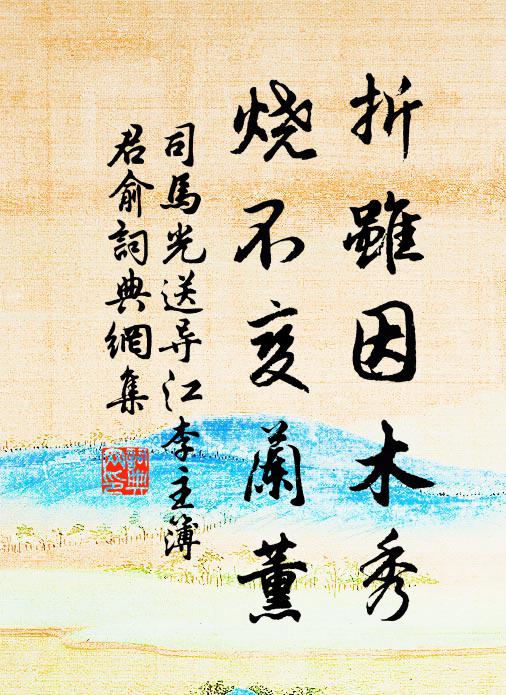 折雖因木秀
烧不变蘭薰
司馬光送导江李主簿
君俞詞典網集